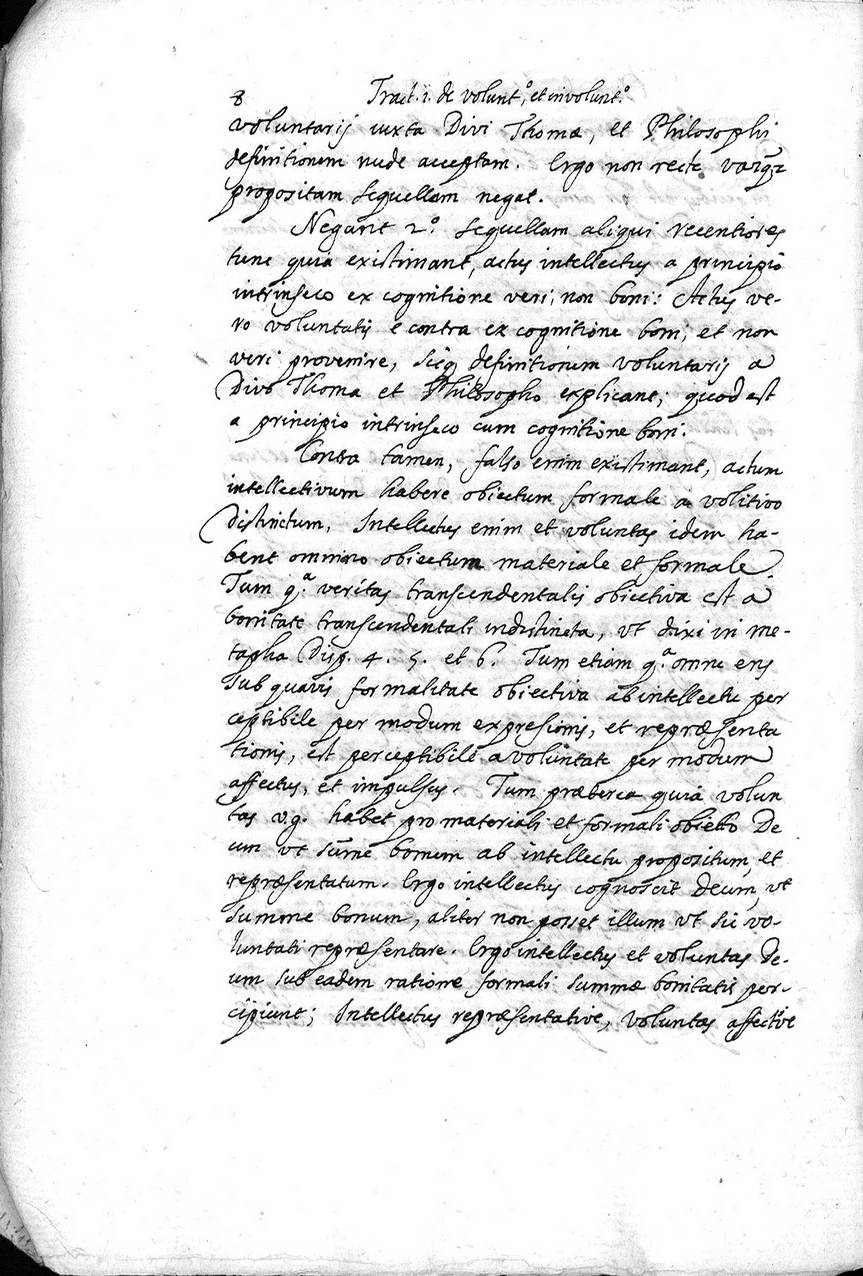 8 Tract. 1. de volunt.º, et involunt.º
voluntarij iuxta Divi Thomæ, et Philosophi
definitionem nude acceptam. Ergo non recte vazqz
propositam sequellam negat.
Negant 2º. sequellam aliqui recentiores
tunc quia existimant, actus intellectus a principio
intrinseco ex cognitione veri, non boni: Actus ve-
ro voluntatis e contra ex cognitione boni, et non
veri provenire, sicq definitionem voluntarij a
Divo Thoma et Philosopho explicant, quod est
a principio intrinseco cum cognitione boni.
Contra tamen, falso enim existimant, actum
intellectivum habere obiectum formale a volitivo
distinctum, Intellectus enim et voluntas idem ha-
bent omnino obiectum materiale et formale.
Tum q.ª veritas transcendentalis obiectiva est a
bonitate transcendentali indistincta, vt dixi in me-
tapha Disp. 4. 5. et 6. Tum etiam q.ª omne ens
sub quavis formalitate obiectiva ab intellectu per
ceptibile per modum expresionis, et repræsenta
tionis, est perceptibile a voluntate per modum
affectus, et impulsus. Tum præterea quia volun
tas v.g. habet pro materiali et formali obiecto De
um vt sume bonum ab intellectu propositum, et
repræsentatum. Ergo intellectus cognoscit Deum, vt
summe bonum, aliter non posset illum vt sic vo-
luntati repræsentare. Ergo intellectus et voluntas De-
um sub eadem ratione formali summæ bonitatis per-
cipiunt; Intellectus repræsentative, voluntas affective